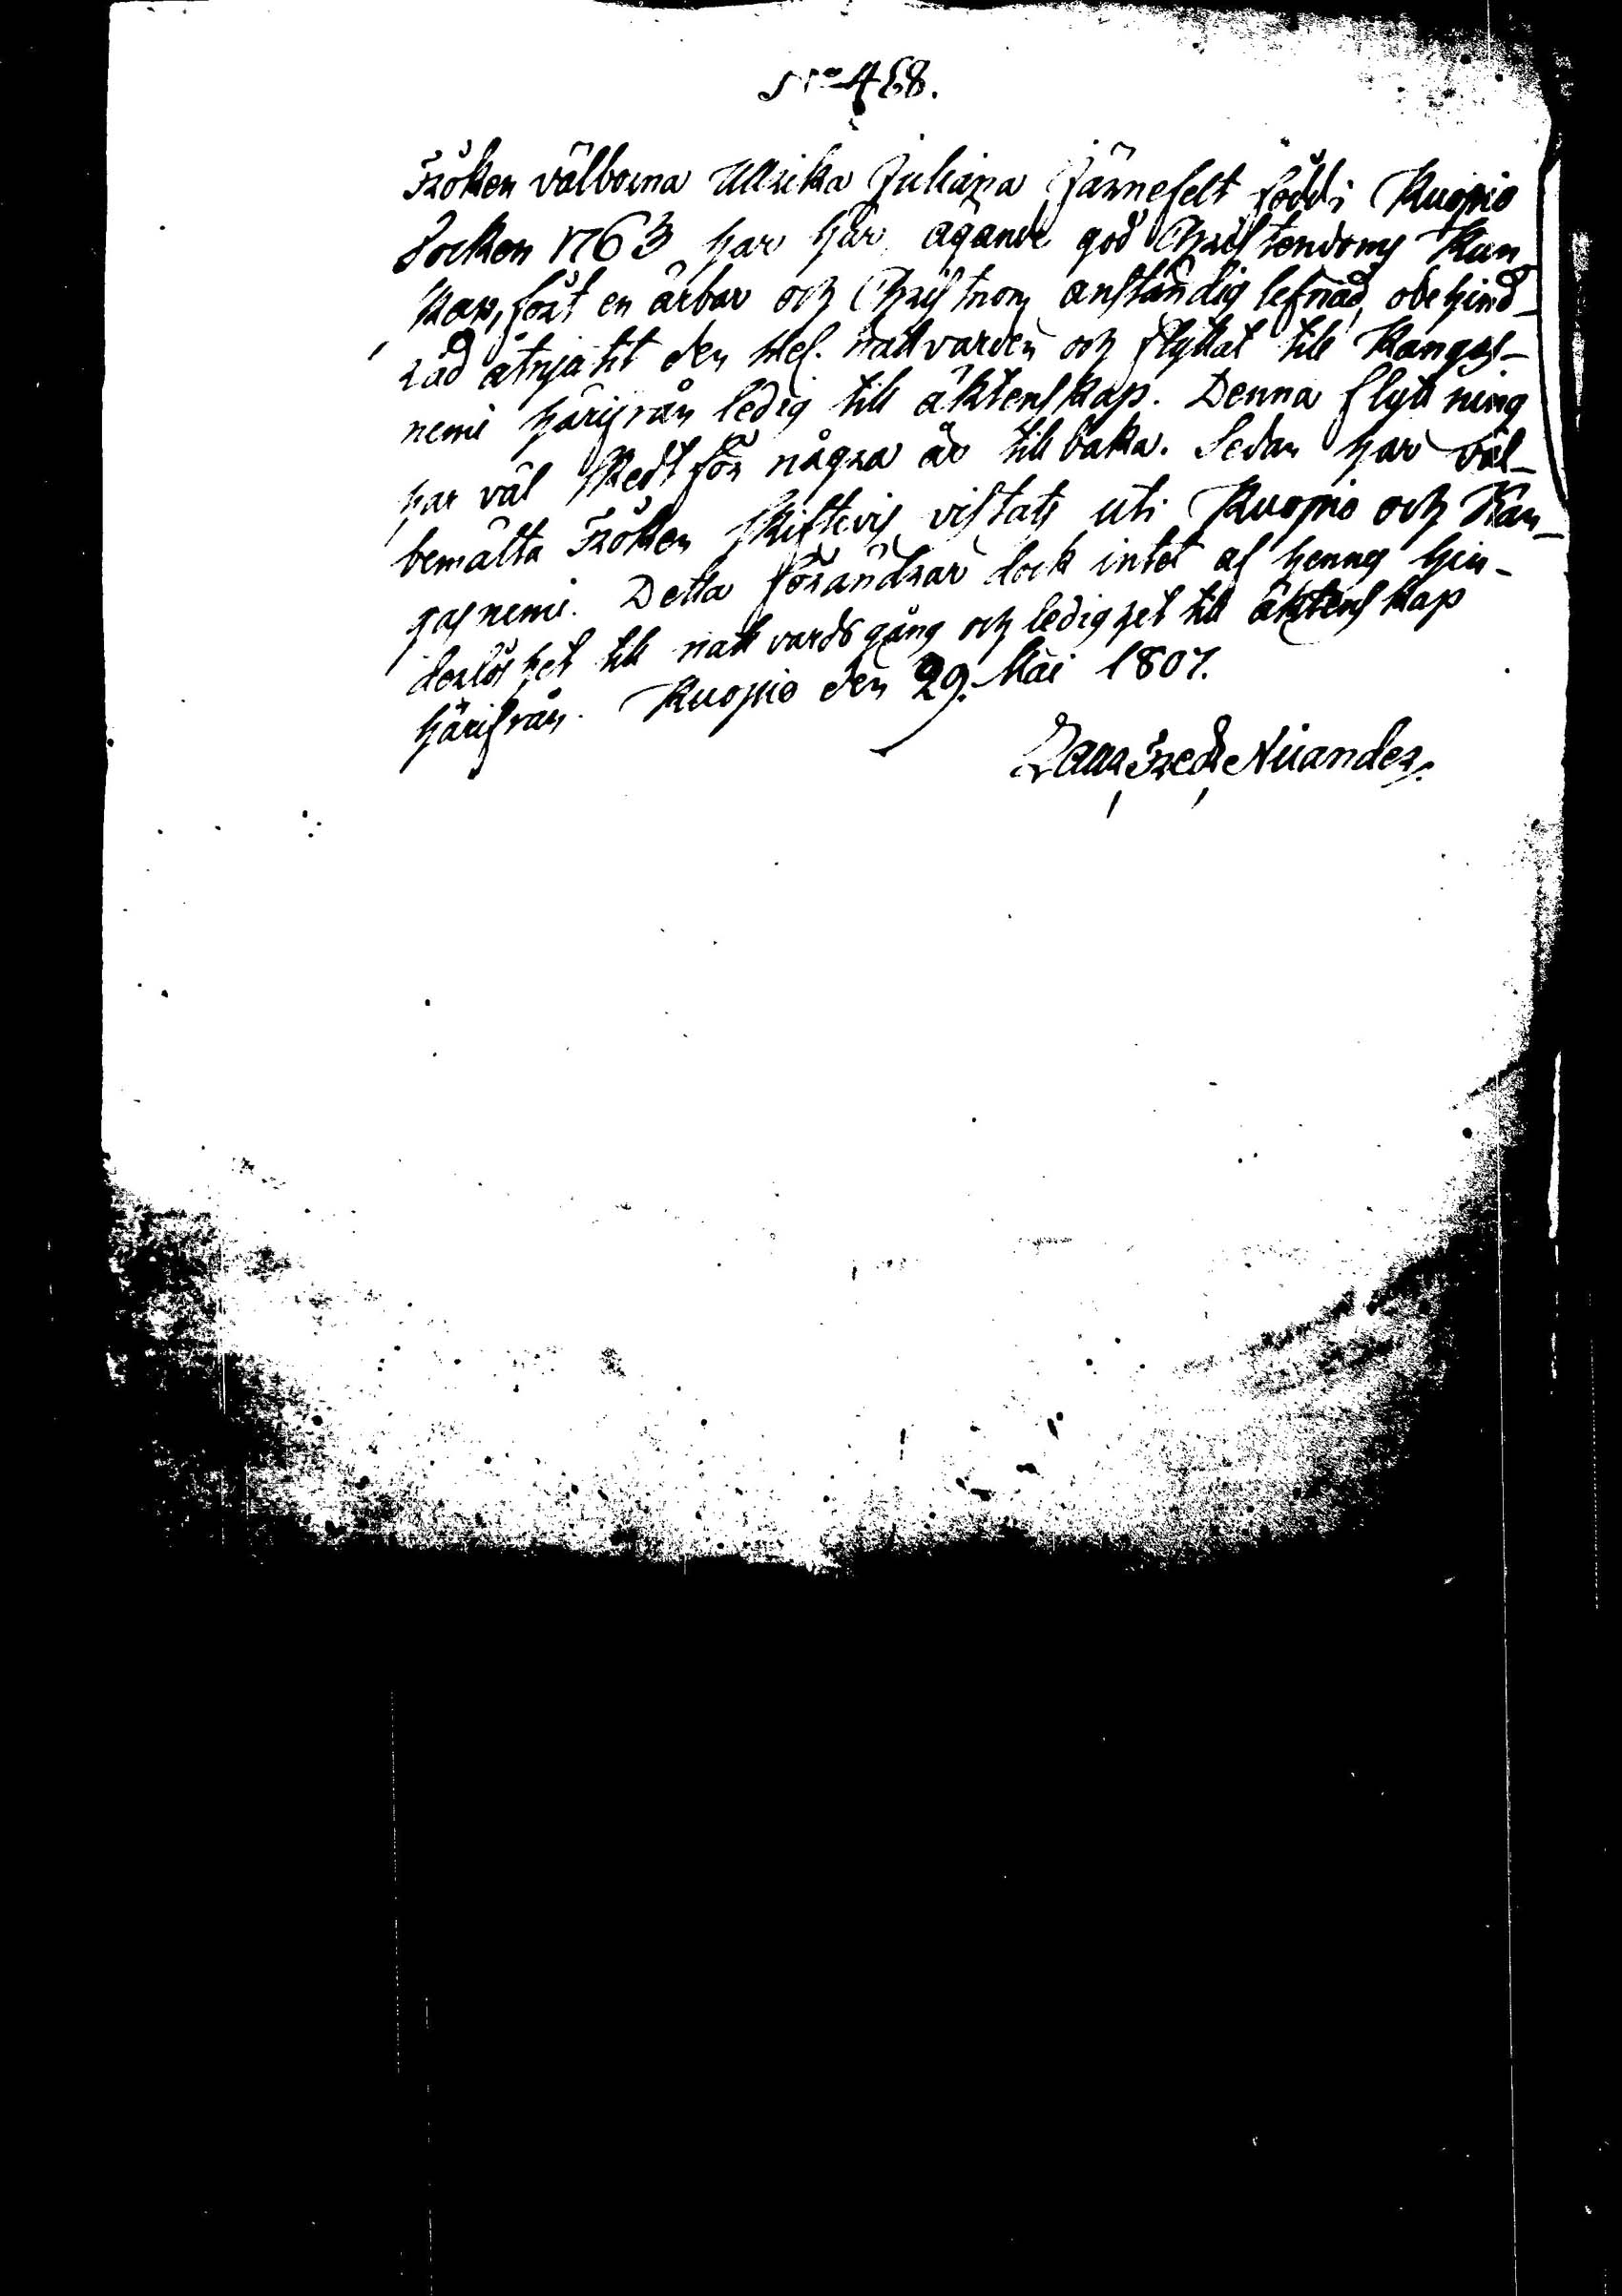 No 468.
Fröken välborna Ullrika Juliana Järnefelt född i Kuopio
Socken 1763 har här, ägande god Christendoms kun-
skap, fört en ärbar och Christnom anständig lefnad, obehind-
rad åtnjutit den Hel. nattvarden och flyttat till Kangas-
nemi härifrån ledig till äktenskap. Denna flyttning
har väl skedt för några år tillbaka. Sedan har väl-
bemälta Fröken skiftevis vistats uti Kuopio och Kan-
gasnemi. Detta förändrar dock intet af hennes hin-
derlöshet till nattvardsgång och ledighet till äktenskap
härifrån. Kuopio den 29. Mai 1807.
Laur. Fredr. Niiander.